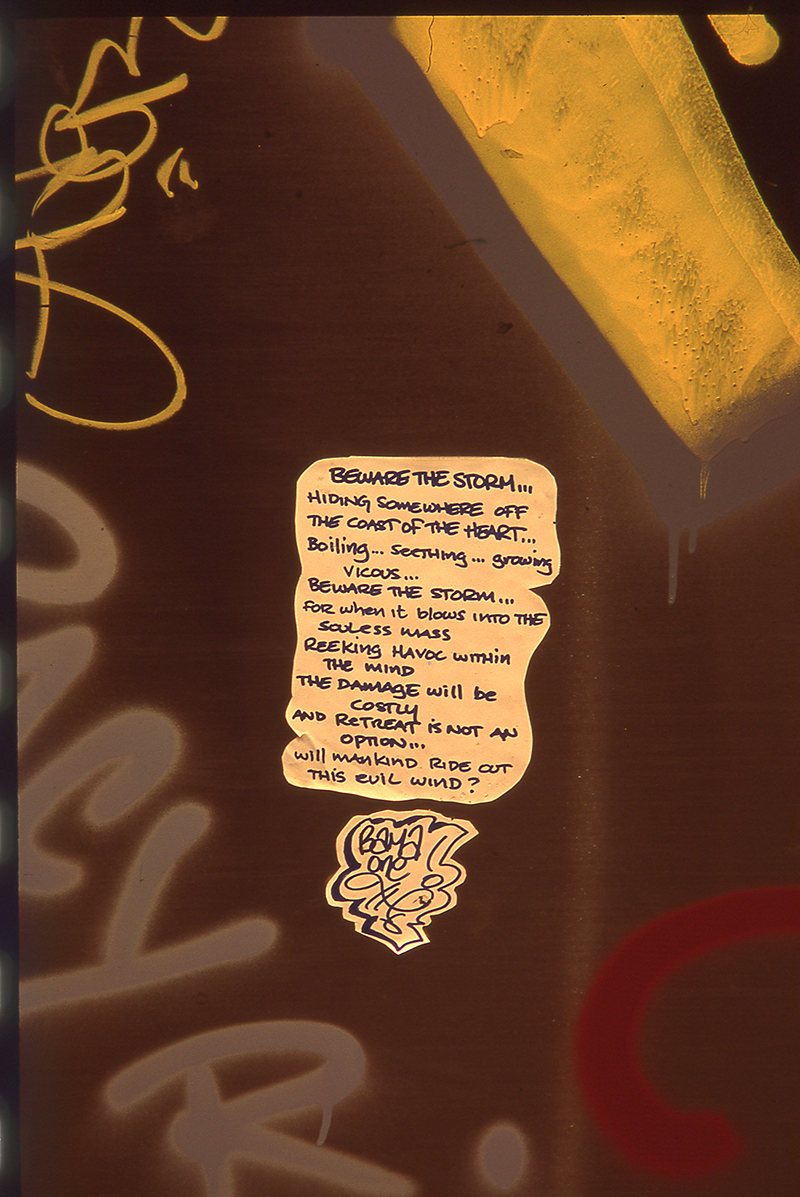 BEWARE THE STORM...
HIDING SOMEWHERE OFF
THE COAST OF THE HEART...
Boiling... SEETHING... growing
VICOUS...
BEWARE THE STORM...
FOR when it blows INTO THE
SOULESS MASS
REEKING HAVOC WITHIN
THE MIND
THE DAMAGE will be
COSTLY
AND RETREAT IS NOT AN
OPTION...
will MANKIND RIDE OUT
THIS EVIL WIND?
BAMA
ONE
R.